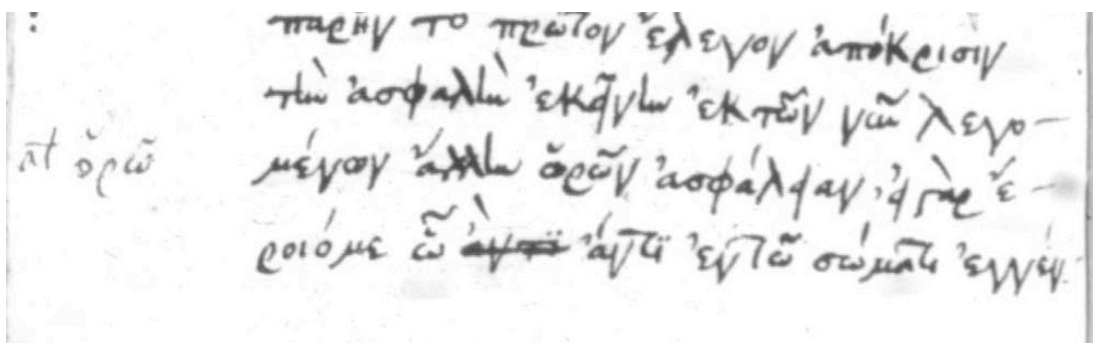 παρην το πρῶτον ἔλεγον ἀπόκρισιν
τὴν ἀσφαλὴν ἐκείνην ἐκ τῶν νῦν λεγο-
at ὁρῶ μένων ἄλλην ὁρῶν ἀσφάλειαν, εἰ γὰρ ἔ-
ροιό με ὧ ἄντι ἐν τῶ σώματι ἐγγέν